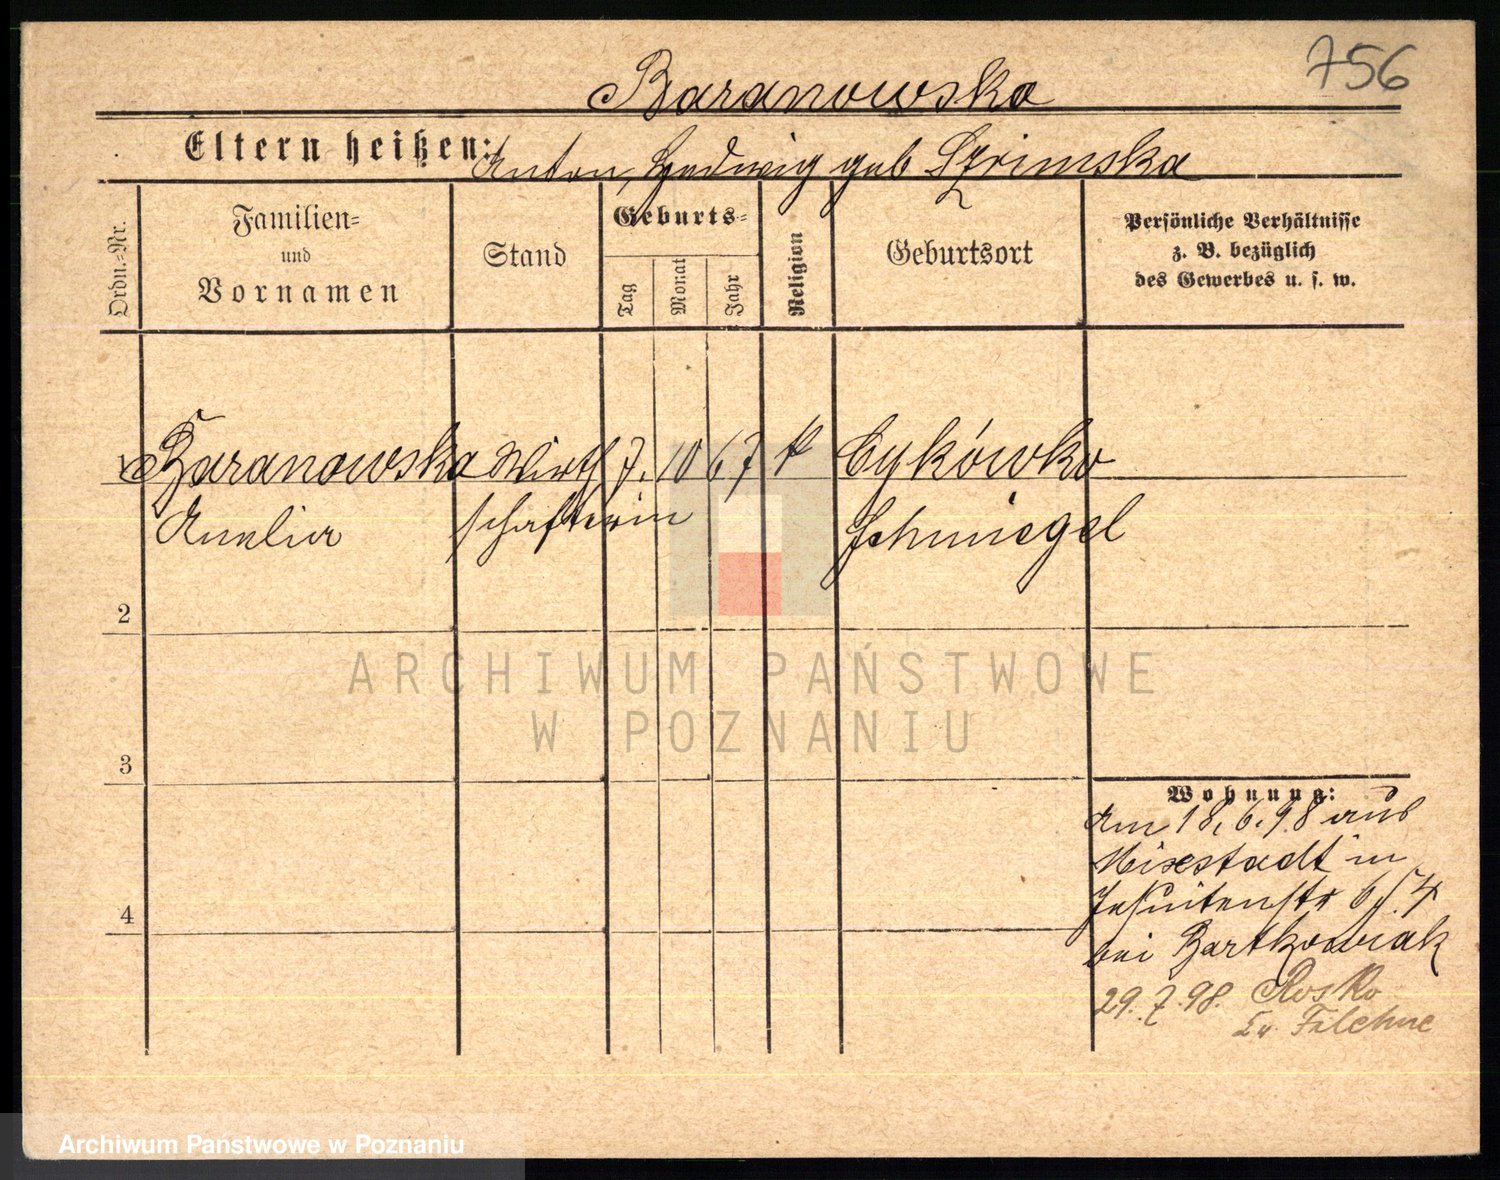 756
Baranowska
Eltern heißen: Anton, Hedwig geb Szrimska
Ordn.-Nr.
Familien-
und
Vornamen
Stand
Geburts-
Tag
Monat
Jahr
Religion
Geburtsort
Persönliche Verhältnisse
z. B. bezüglich
des Gewerbes u. s. w.
1 Baranowska Wirth 7. 10 67 k Cykówko
Amelia schafterin Schmiegel
2
ARCHIWUM PAŃSTWOWE
W POZNANIU
3
Wohnung:
Am 18. 6. 98 aus
Mixstadt in
Jesuitenstr
4
bei Bartkowiak
29. 7. 98. Rosko
Filehne
Archiwum Państwowe w Poznaniu